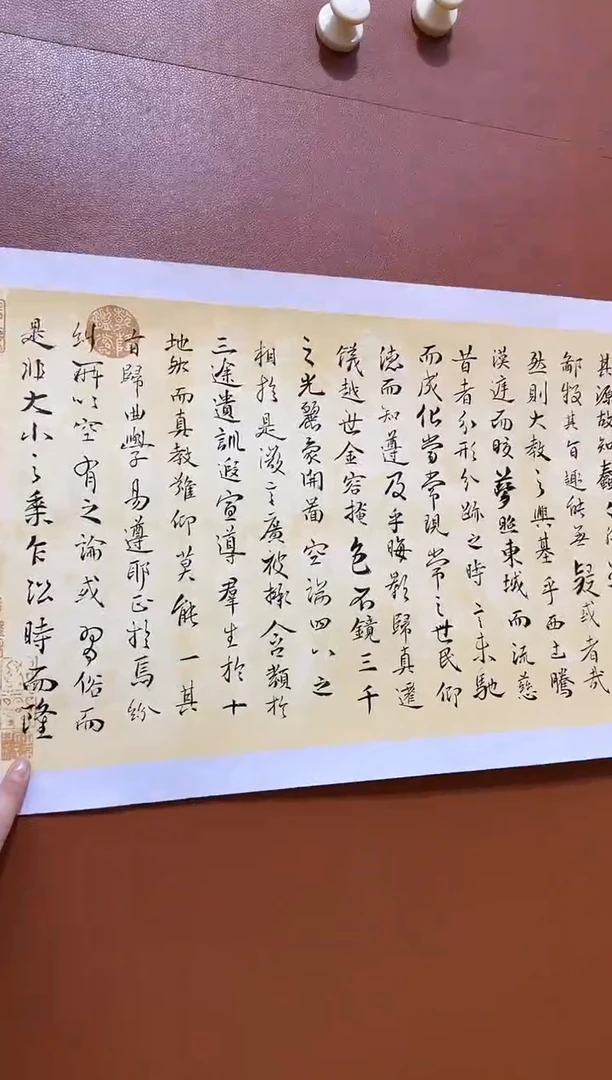 其源故知蠢
鄙投其旨趣能無疑或者哉
然則大教之興基乎西土騰
漢庭而皎夢照東域而流慈
昔者分形分跡之時言未馳
而成化當常現常之世民仰
德而知遵及乎晦影歸真遷
儀越世金容掩色不鏡三千
之光麗象開圖空端四八之
相於是微言廣被拯含類於
三途遺訓遐宣導羣生於十
地然而真教難仰莫能一其
旨歸曲學易遵耶正於焉紛
糺所以空有之論或習俗而
是非大小之乘乍沿時而隆